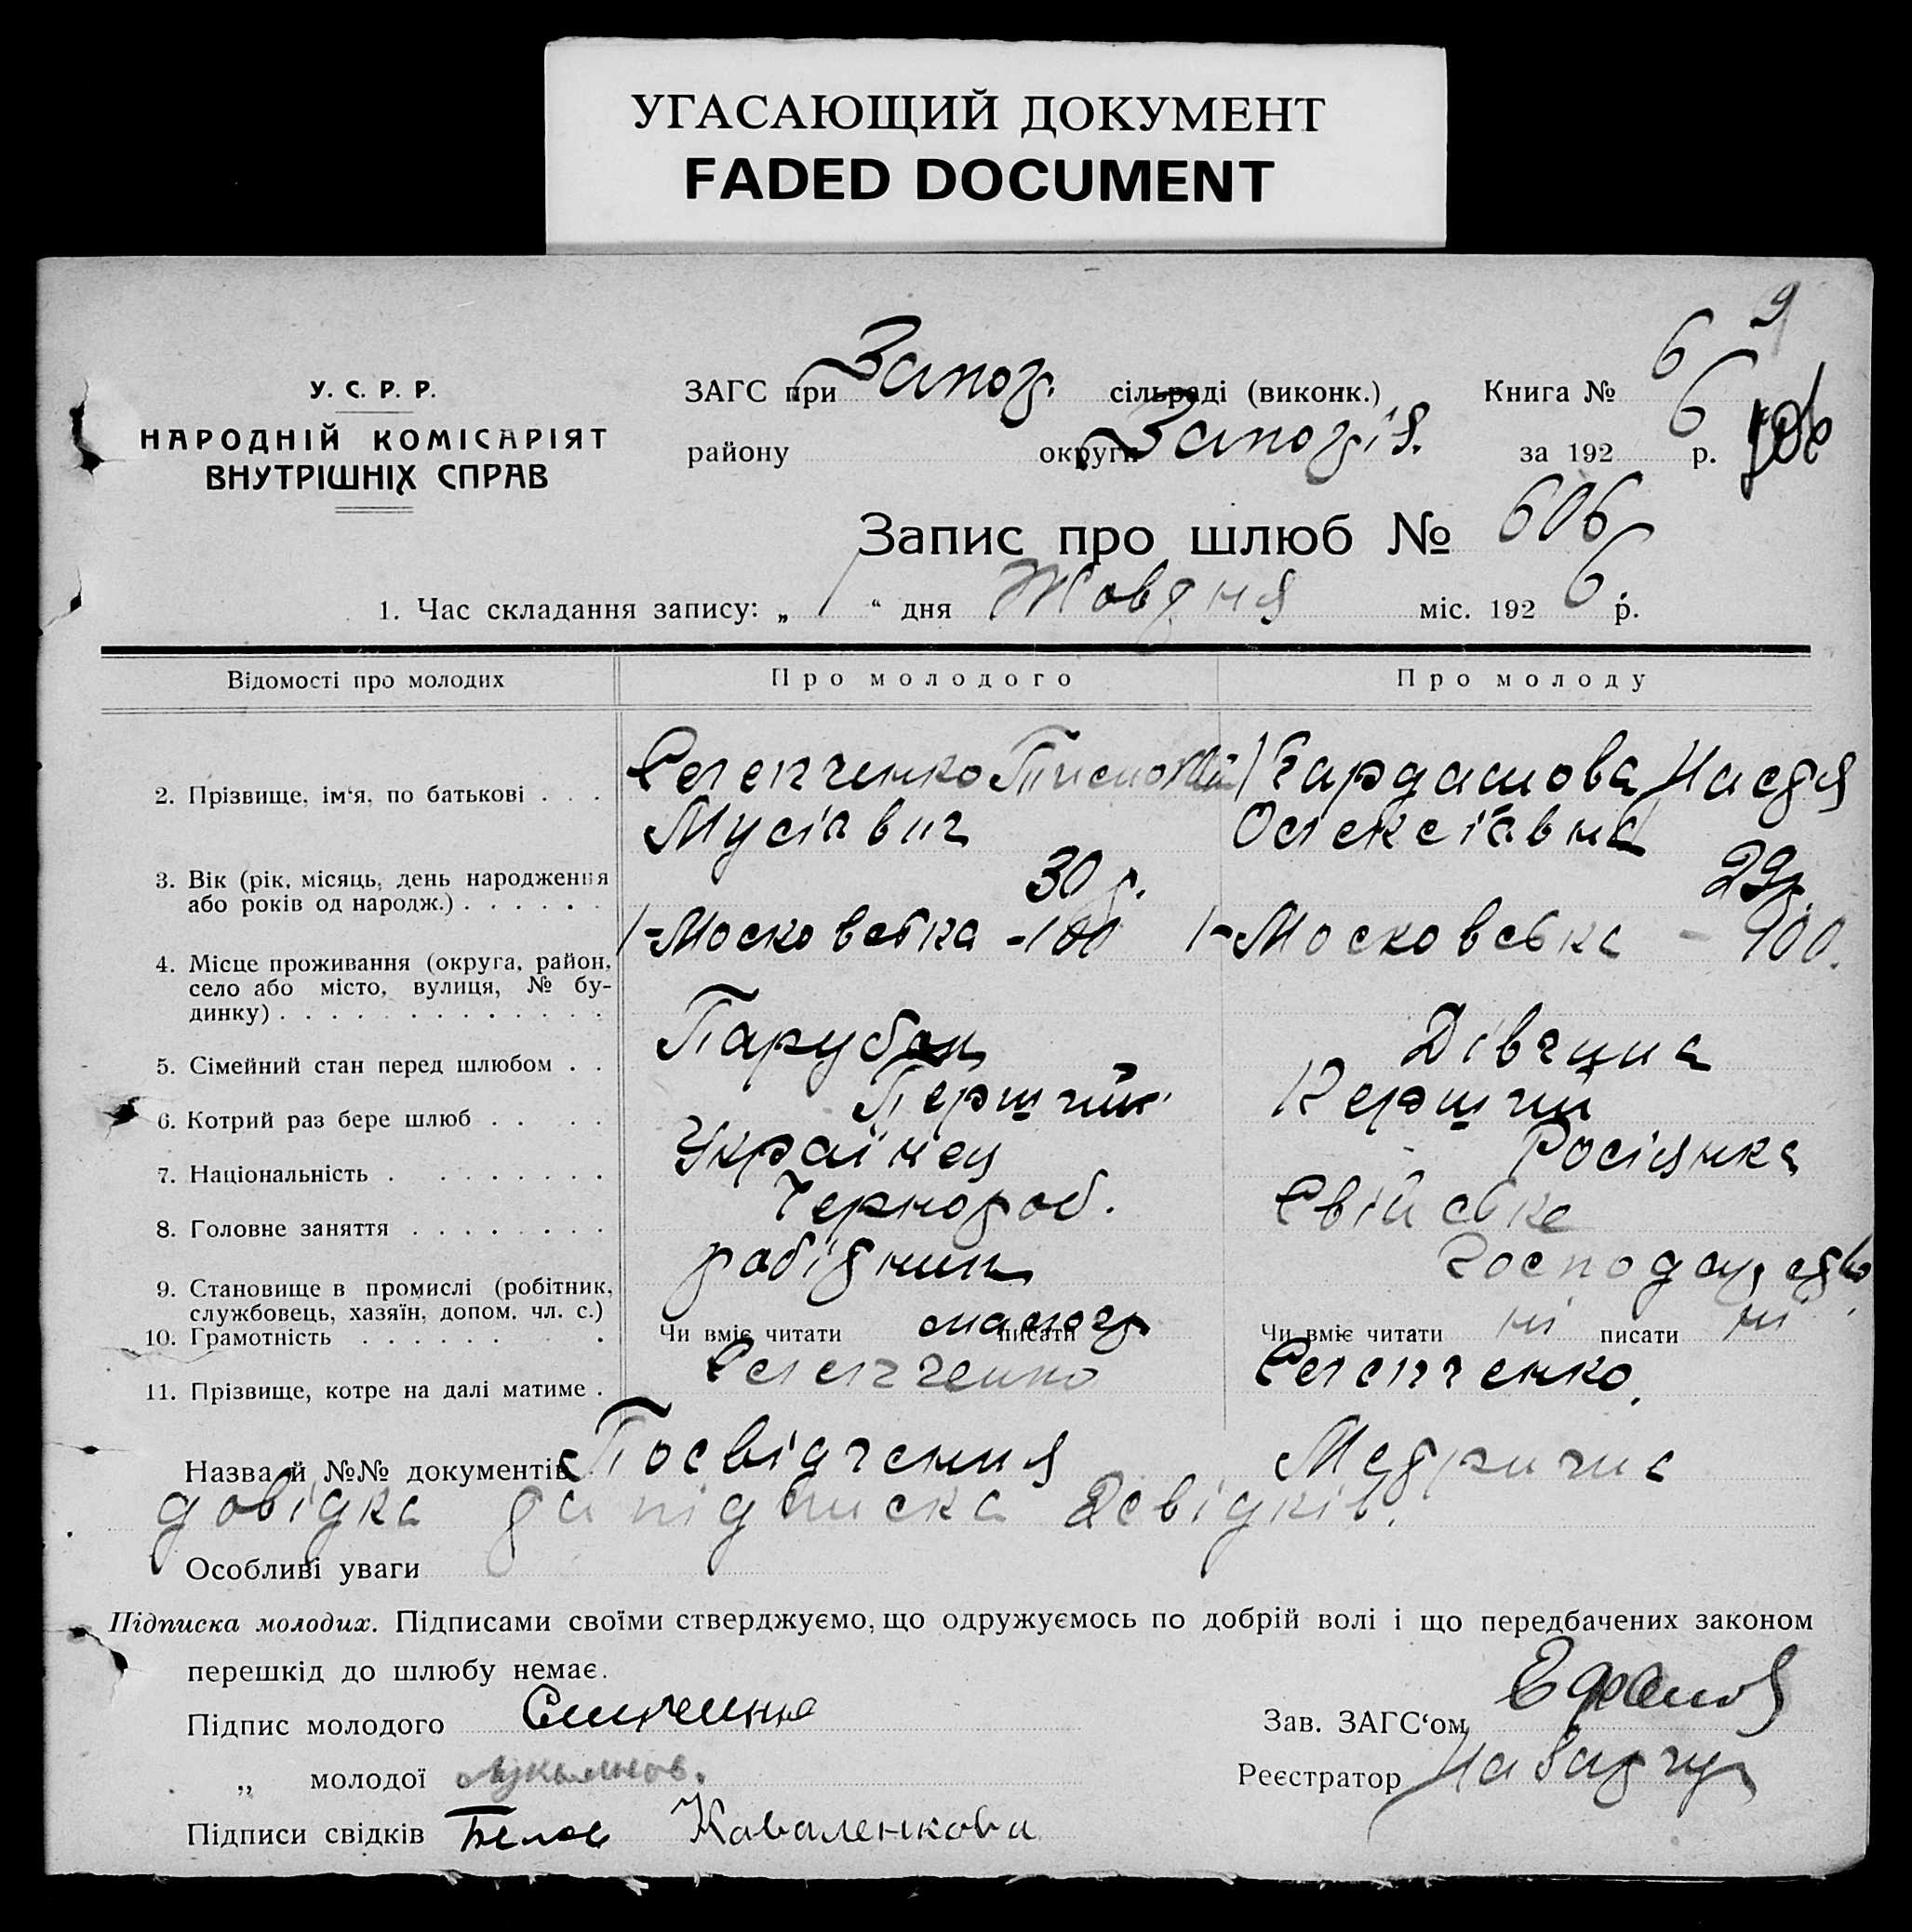 УГАСАЮЩИЙ ДОКУМЕНТ
FADED DOCUMENT
9
У. С. Р. Р.
НАРОДНІЙ КОМІСАРІЯТ
ВНУТРІШНІХ СПРАВ
ЗАГС при Запор. сільраді (виконк.) Книга № 6
району округи Запоріз. за 192 6 р.
Запис про шлюб № 606
1. Час складання запису: „ 1 “ дня Жовтня міс. 192 6 р.
Відомості про молодих Про молодого Про молоду
2. Прізвище, ім‘я, по батькові . . . Мусієвич Кардашова Настя Олексіевна
3. Вік (рік, місяць, день народження
або років од народж.) . . . . . . 30 р. 29 р.
4. Місце проживання (округа, район,
село або місто, вулиця, № бу-
динку) . . . . . . . . . . . . . 1-Московська -100 1-Московська - 100.
5. Сімейний стан перед шлюбом . . Парубок Дівчина
6. Котрий раз бере шлюб . . . . Перший Перший
7. Національність . . . . . . . . Українец Росіянка
8. Головне заняття . . . . . . . . Чернороб. Свійське
господарство
9. Становище в промислі (робітник,
службовець, хазяїн, допом. чл. с.) робітник
10. Грамотність . . . . . . . Чи вміє читати малогр писати Чи вміє читати ні писати ні
11. Прізвище, котре на далі матиме .
Назва й №№ документів Посвідчення Метрична
довідка та підписка 2 свідків.
Особливі уваги
Підписка молодих. Підписами своїми стверджуємо, що одружуємось по добрій волі і що передбачених законом
перешкід до шлюбу немає.
Підпис молодого Зав. ЗАГС‘ом
„ молодої Реєстратор
Підписи свідків Белов Коваленкова